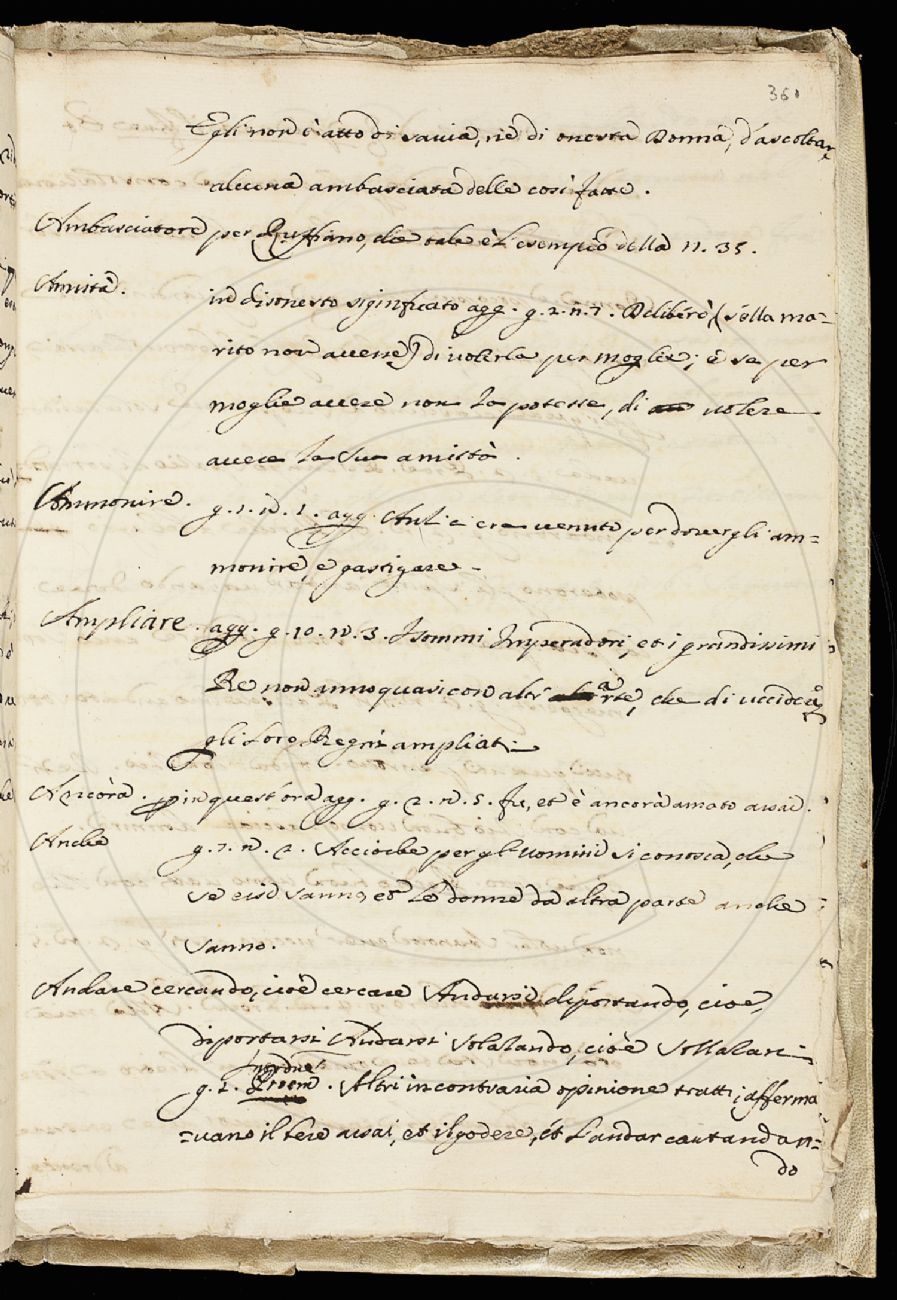 361
Egli non è atto di savia, nè di onesta Donna, d'ascoltar
alcuna ambasciata delle così fatte.
Ambasciatore per Ruffiano, che tale è l'esempio della n. 35.
Amistà. in disonesto significato agg. g. 2. n. 7. Deliberò, (s'ella ma-
rito non avesse) di volerla per moglie; e se per
moglie avere non la potesse, di volere
avere la sua amistà.
Ammonire. g. 1. n. 1. agg. era venuto per dovergli am=
monire, e gastigare.
Ampliare. agg. g. 10. n. 3. I sommi Imperadori, et i grandissimi
Re non anno quasi con altr' arte, che di uccidere
gli loro Regni ampliati
Ancora. in quest'ora agg. g. 2. n. 5. fu, et è ancora amato assai.
Anche g. 7. n. 2. Acciochè per gl'uomini si conosca, che
se eisi sanno, et le donne da altra parte anche
sanno.
Andare cercando, cioè cercare Andarsi diportando, cioè,
diportarsi Andarsi sollalando, cioè sollalarsi
g. 1. Proem. Altri in contraria opinione tratti, afferma
=vano il bere assai, et il godere, et l'andar cantando an=
do